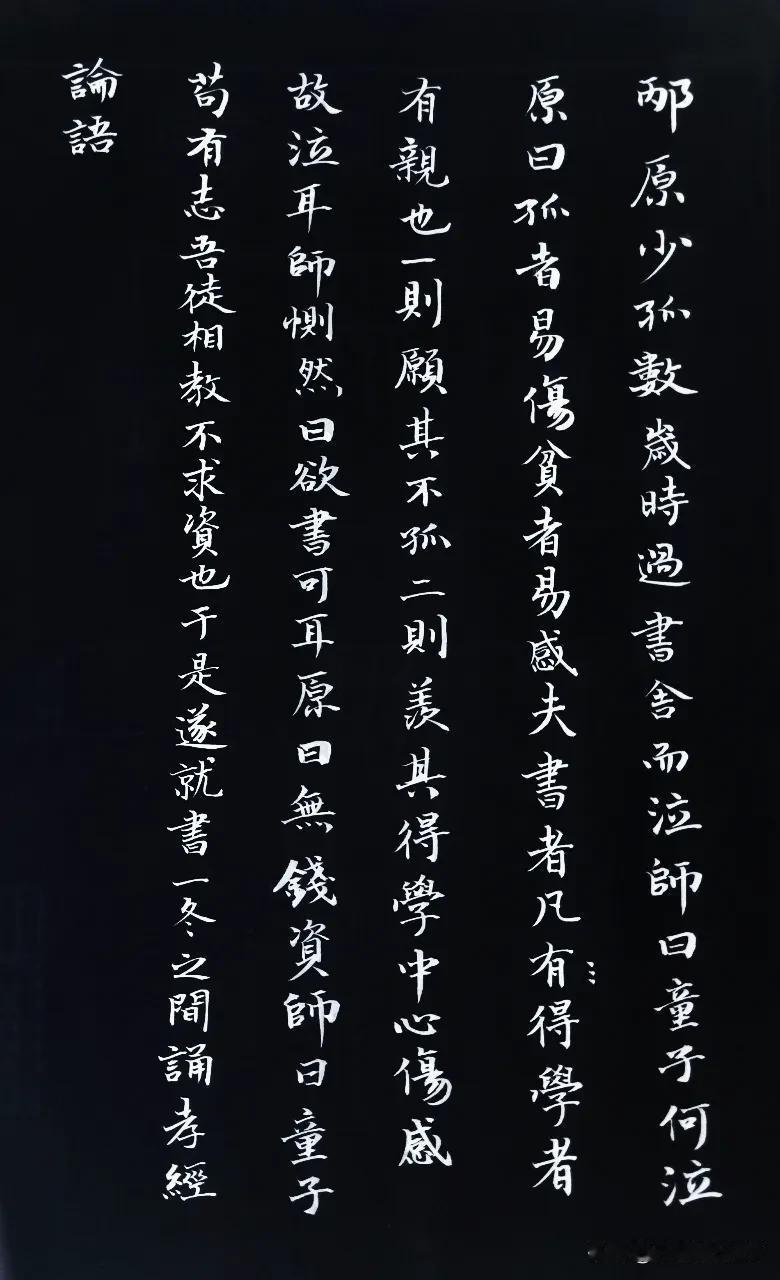 邴原少孤數歲時過書舍而泣師曰童子何泣
原曰孤者易傷貧者易感夫書者凡有得學者
有親也一則願其不孤二則羨其得學中心傷感
故泣耳師惻然曰欲書可耳原曰無錢資師曰童子
苟有志吾徒相教不求資也于是遂就書一冬之間誦孝經
論語